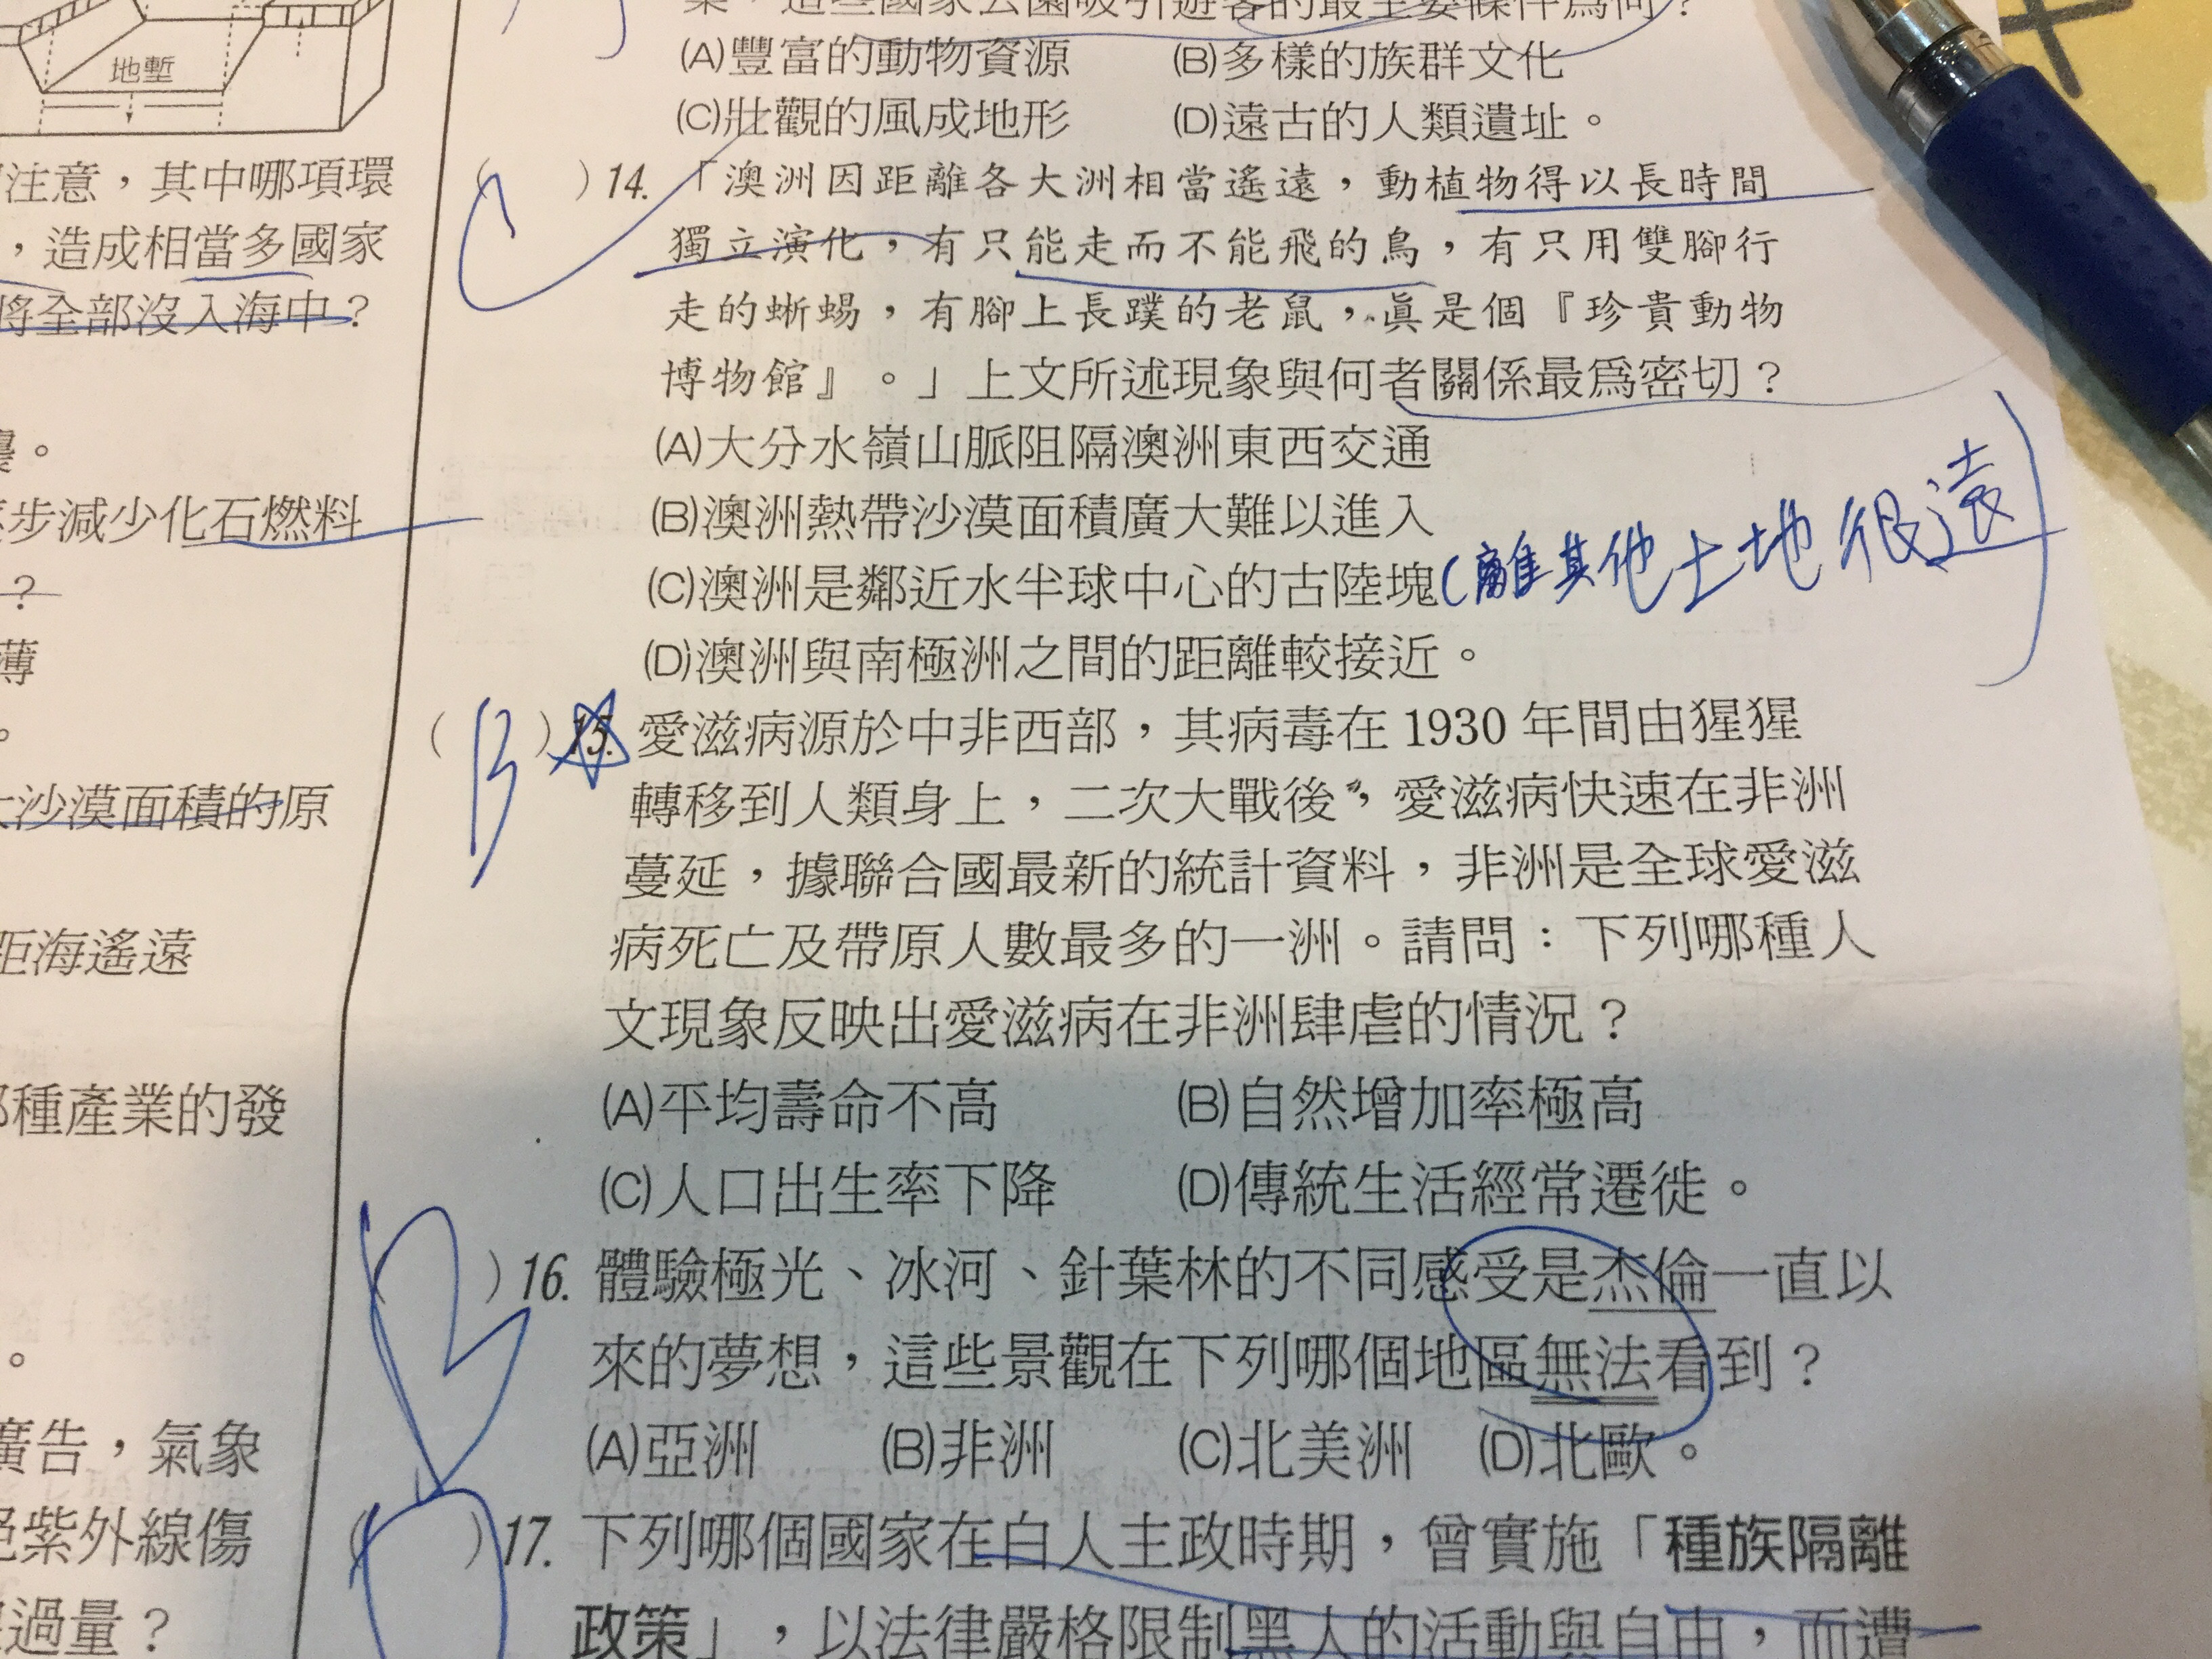 地塹
注意，其中哪項環
，造成相當多國家
將全部沒入海中？
。
步減少化石燃料
？
薄
。
沙漠面積的原
距海遙遠
種產業的發
。
廣告，氣象
紫外線傷
過量？
業，這些國家公園吸引遊客的最主要條件為何？
(A)豐富的動物資源 (B)多樣的族群文化
(C)壯觀的風成地形 (D)遠古的人類遺址。
( C )14.「澳洲因距離各大洲相當遙遠，動植物得以長時間
獨立演化，有只能走而不能飛的鳥，有只用雙腳行
走的蜥蜴，有腳上長蹼的老鼠，真是個『珍貴動物
博物館』。」上文所述現象與何者關係最為密切？
(A)大分水嶺山脈阻隔澳洲東西交通
(B)澳洲熱帶沙漠面積廣大難以進入
(C)澳洲是鄰近水半球中心的古陸塊(離其他土地很遠)
(D)澳洲與南極洲之間的距離較接近。
( B )15.愛滋病源於中非西部，其病毒在 1930 年間由猩猩
轉移到人類身上，二次大戰後，愛滋病快速在非洲
蔓延，據聯合國最新的統計資料，非洲是全球愛滋
病死亡及帶原人數最多的一洲。請問：下列哪種人
文現象反映出愛滋病在非洲肆虐的情況？
(A)平均壽命不高 (B)自然增加率極高
(C)人口出生率下降 (D)傳統生活經常遷徙。
( B )16.體驗極光、冰河、針葉林的不同感受是杰倫一直以
來的夢想，這些景觀在下列哪個地區無法看到？
(A)亞洲 (B)非洲 (C)北美洲 (D)北歐。
( )17.下列哪個國家在白人主政時期，曾實施「種族隔離
政策」，以法律嚴格限制黑人的活動與自由，而遭